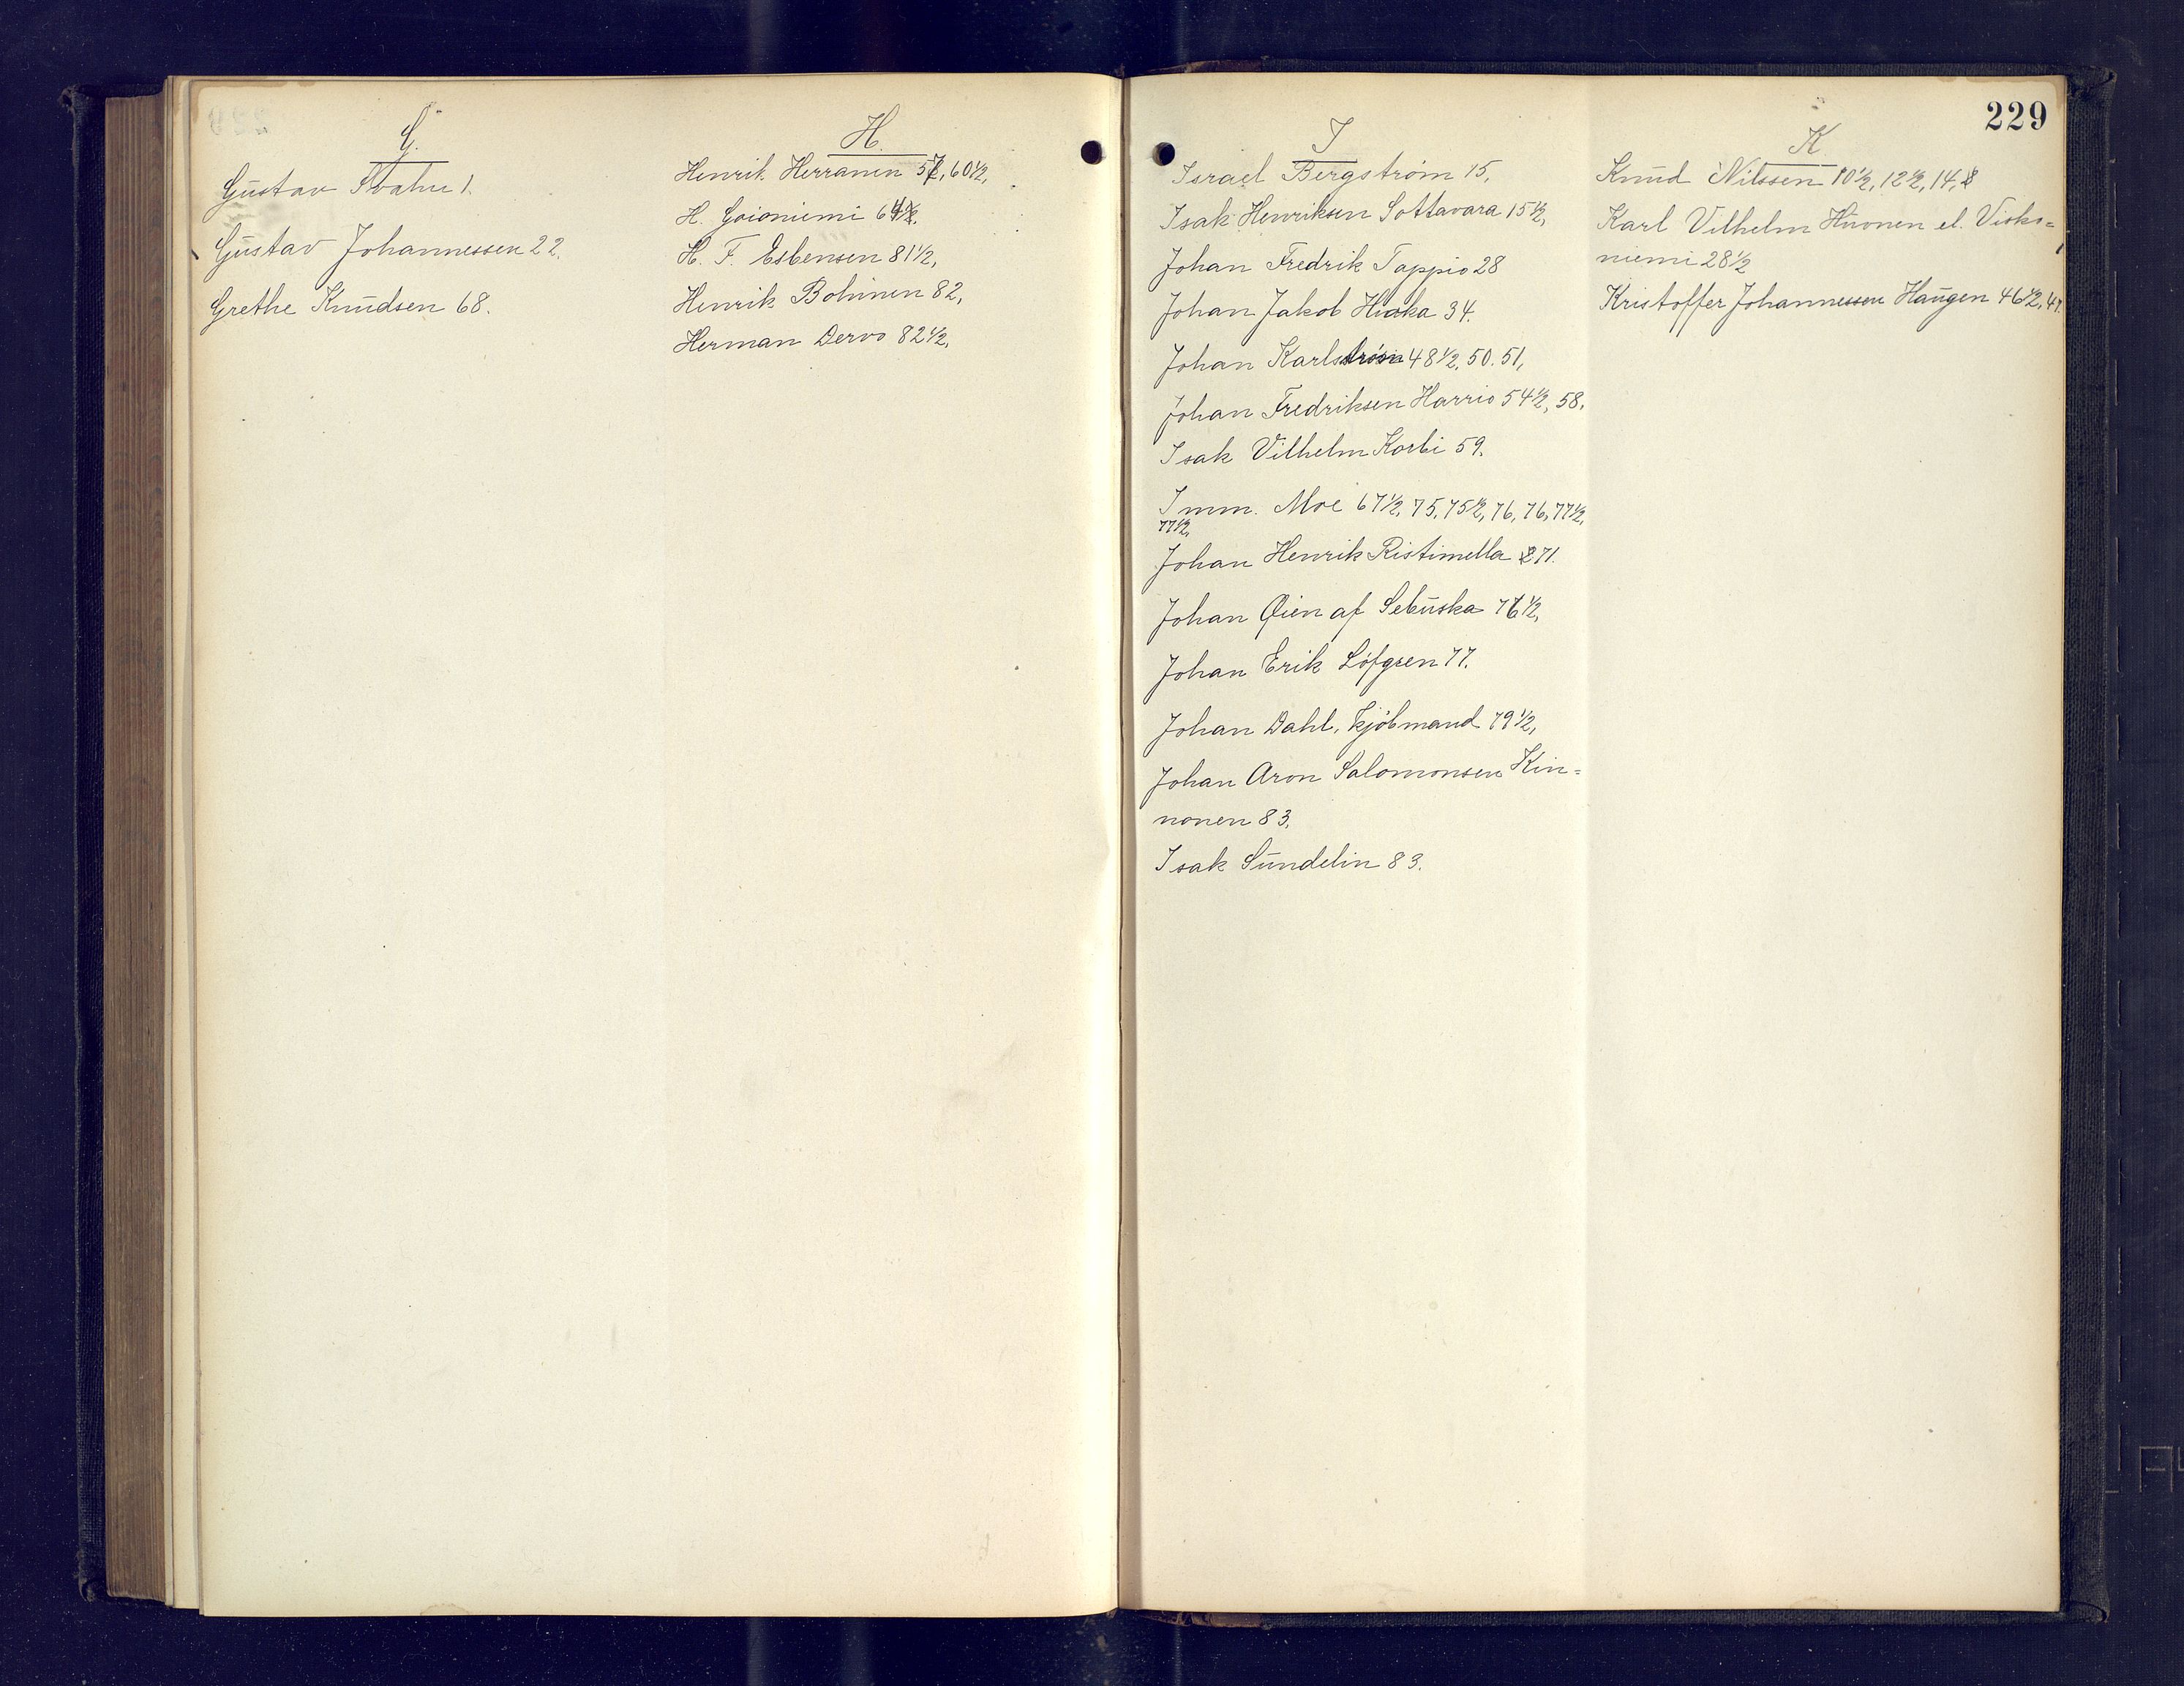 G.
Gustav Svahn 1.
Gustav Johannessen 22.
Grethe Knudsen 68.
H.
Henrik Herranen 57, 60½,
H. Goioniemi 64½.
H. F. Esbensen 81½,
Henrik Bohinen 82,
Herman Dervo 82½,
229
I
Israel Bergström 15,
Isak Henriksen Sottavara 15½,
Johan Fredrik Tappio 28
Johan Jakob Huska 34.
Johan Karlström 48½, 50. 51,
Johan Fredriksen Harrio 54½, 58,
Isak Vilhelm Korbi 59.
Imm. Moe 67½, 75, 75½, 76, 76, 77½,
77½,
Johan Henrik Ristimella 71.
Johan Øien af Sebuska 76½,
Johan Erik Löfgren 77.
Johan Dahl, kjöbmand 79½,
Johan Aron Salomonsen Kin=
nonen 83.
Isak Sundelin 83.
K
Knud Nilssen 10½, 12½, 14,
Karl Vilhelm Huonen el. Visko=
niemi 28½
Kristoffer Johannessen Haugen 46½, 47.